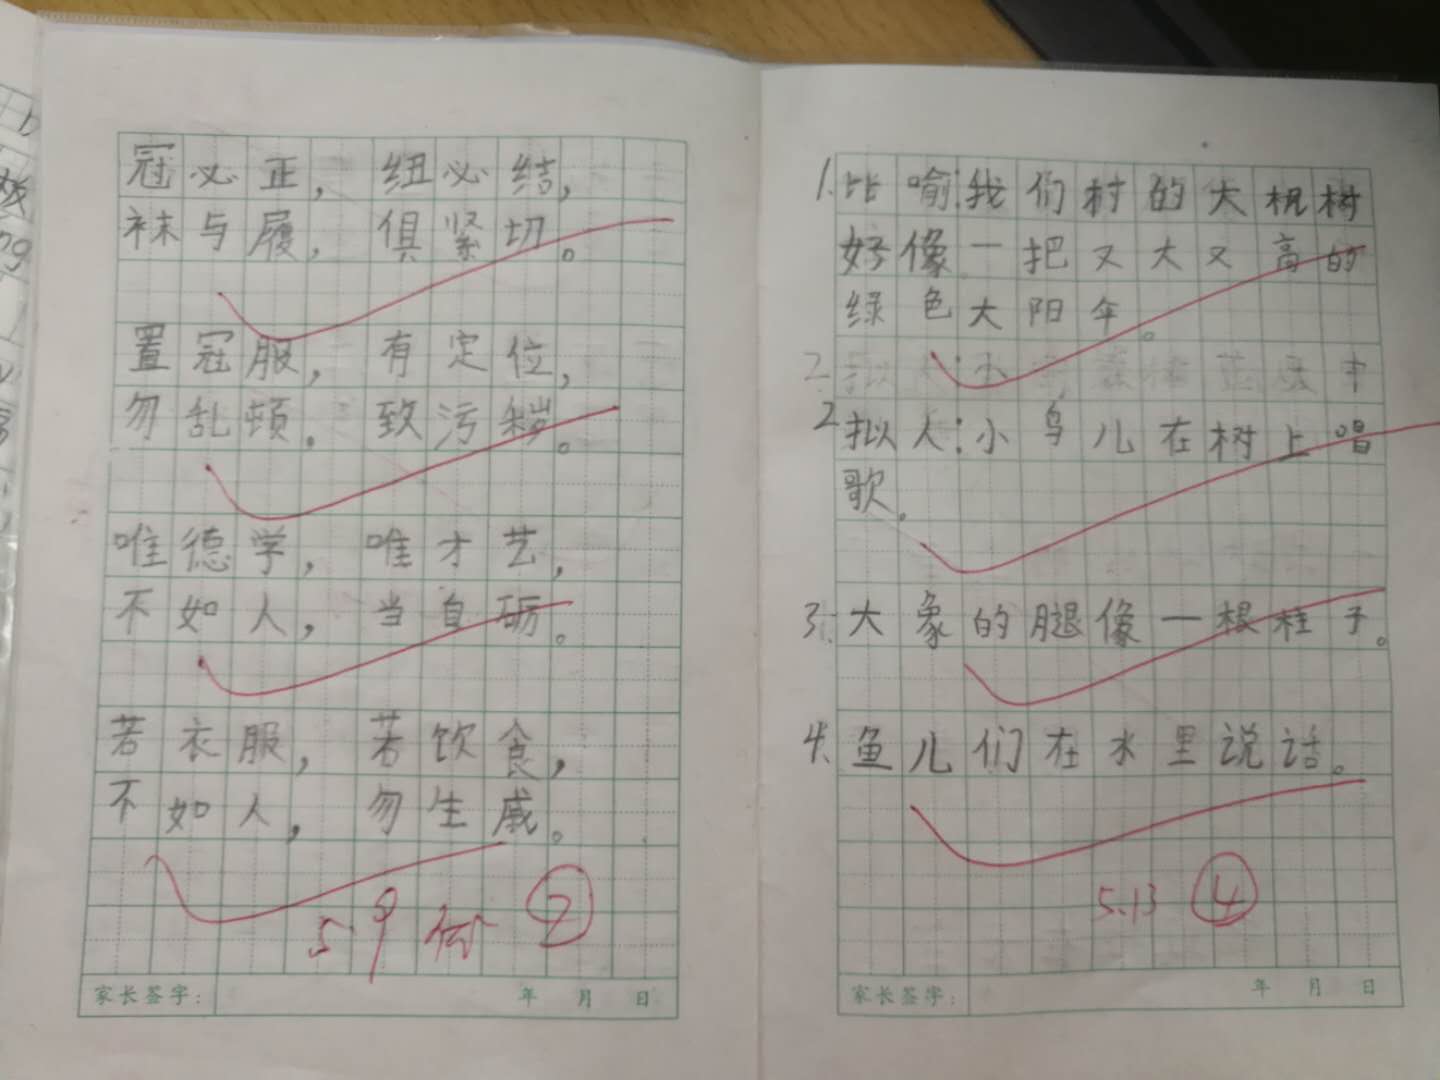 冠必正，纽必结，
袜与履，俱紧切。
置冠服，有定位，
勿乱顿，致污秽。
唯德学，唯才艺，
不如人，当自砺。
若衣服，若饮食，
不如人，勿生戚。
5.9 ②
家长签字： 年 月 日
1.比喻:我们村的大机树
好像一把又大又高的
绿色大阳伞。
2.拟人:小鸟儿在树上唱
歌。
3.大象的腿像一根柱子。
4.鱼儿们在水里说话。
5.13 ④
家长签字： 年 月 日